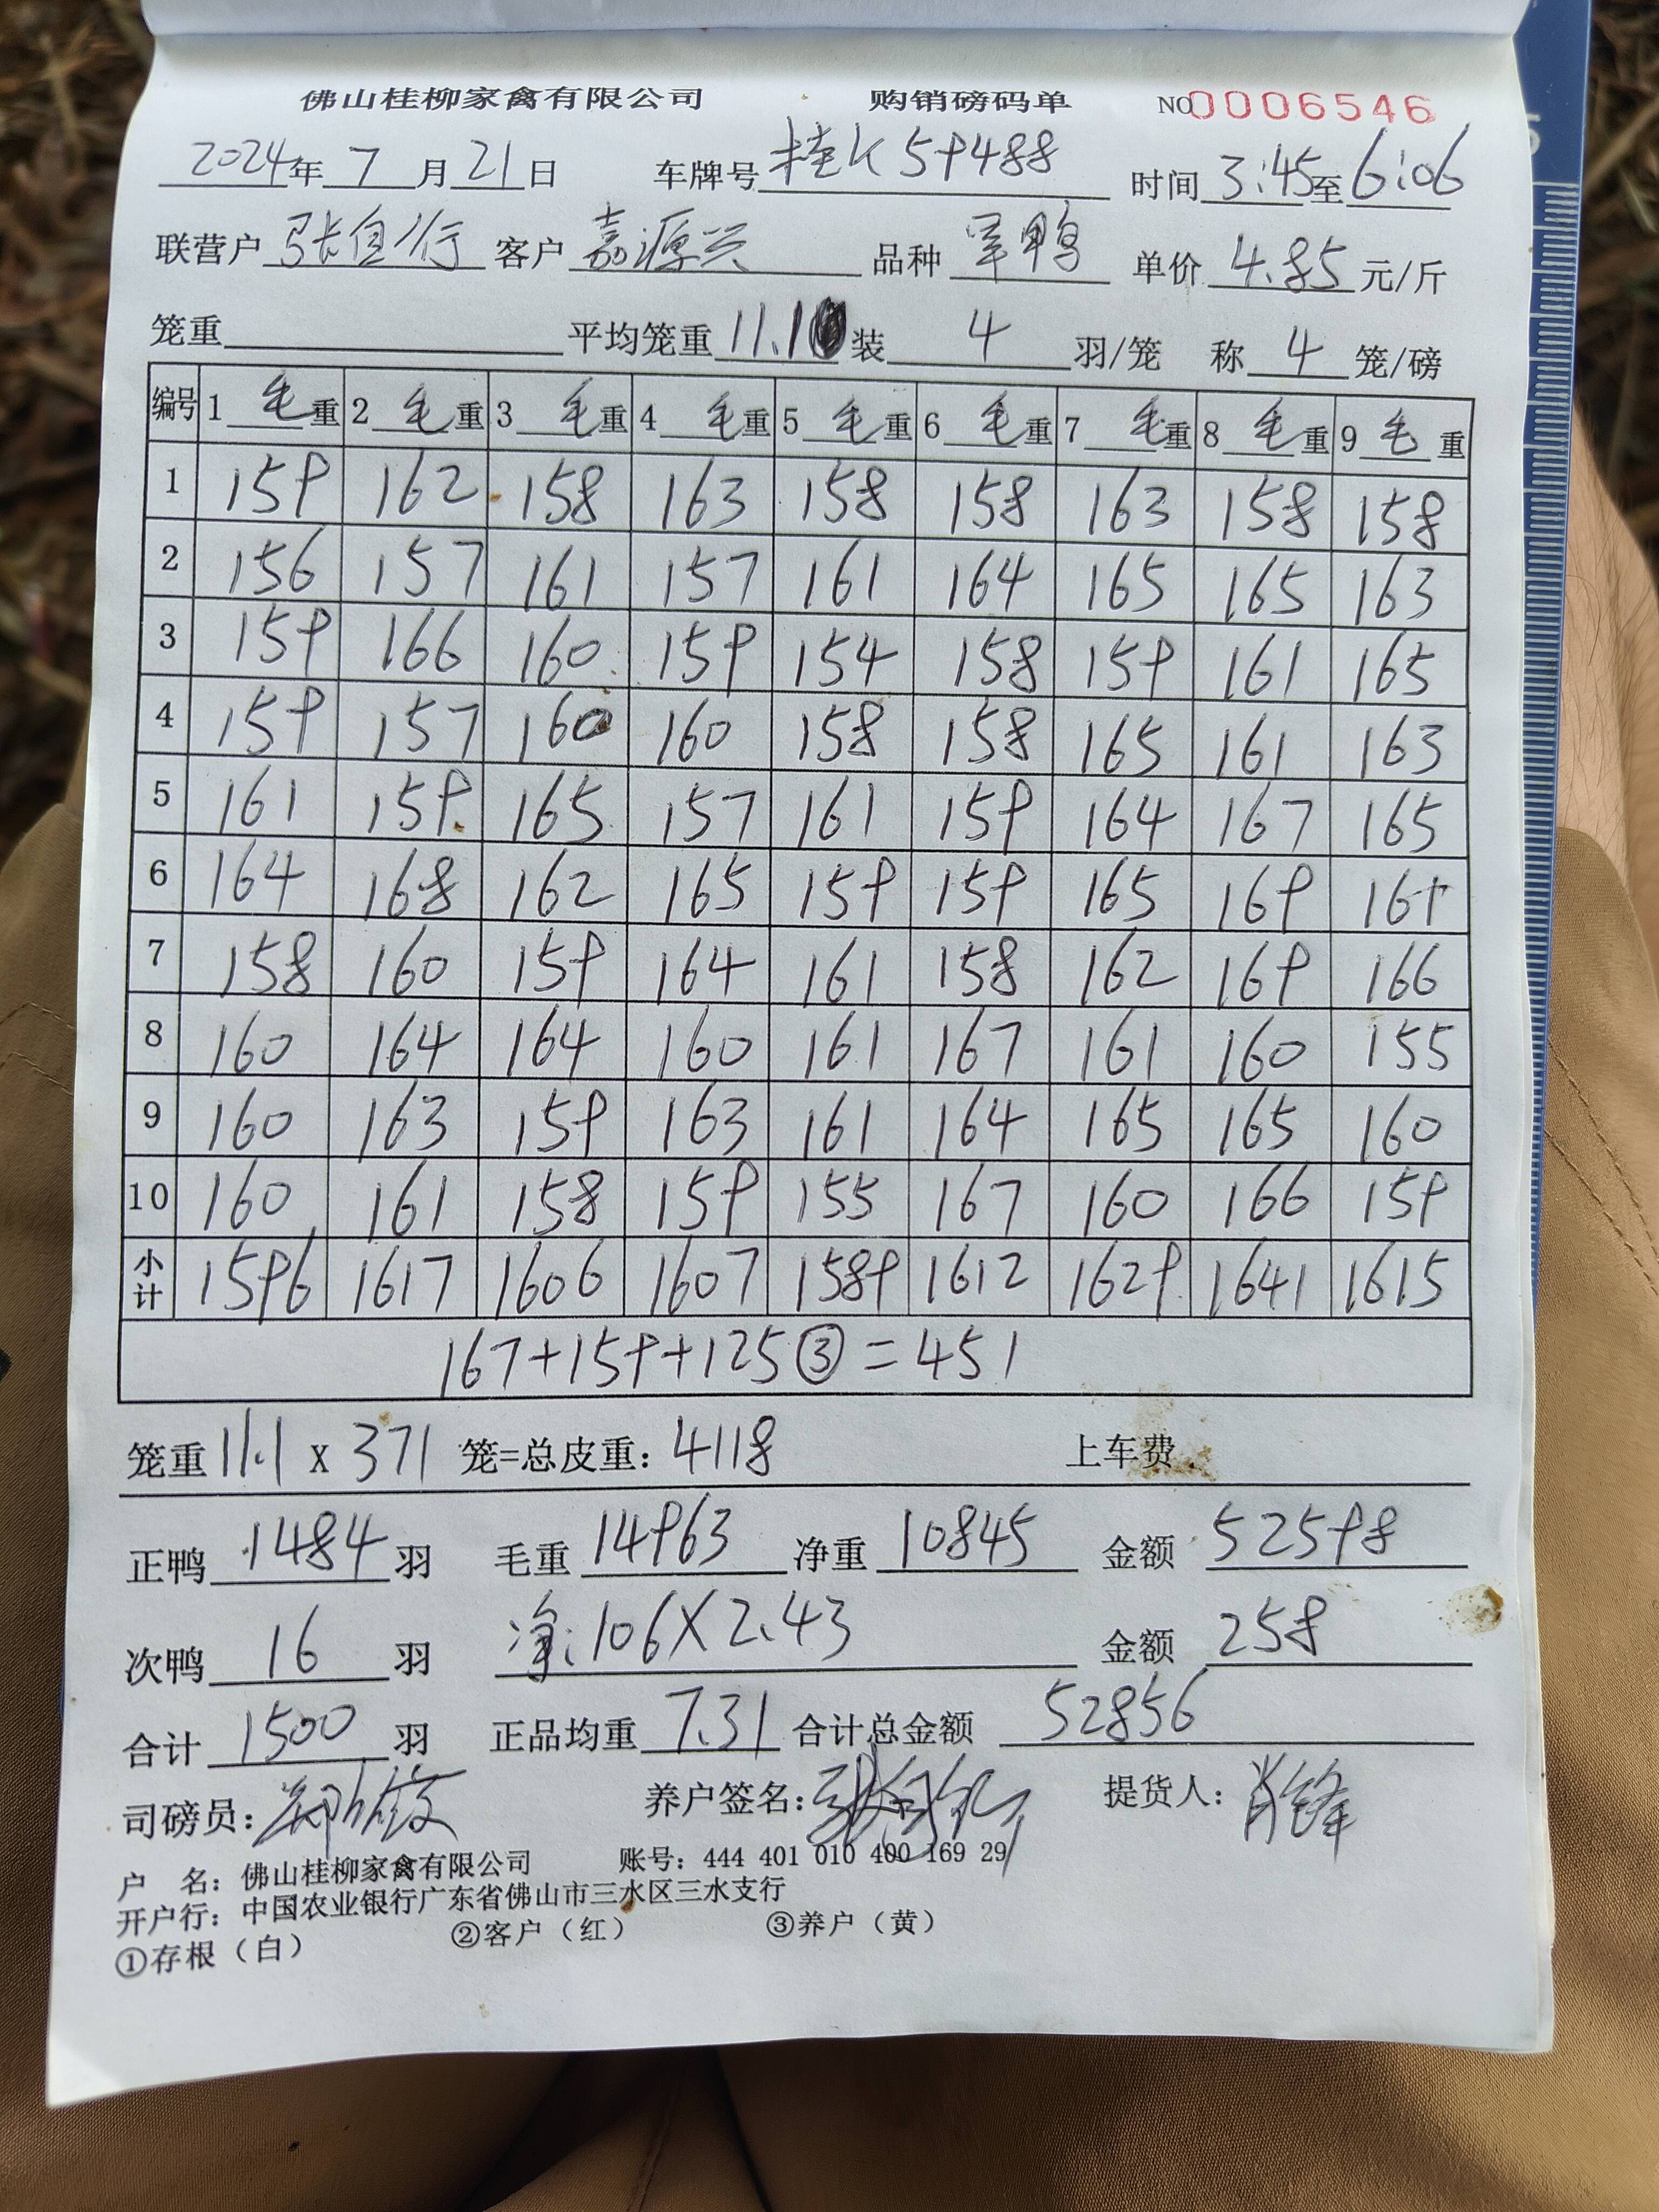 佛山桂柳家禽有限公司 购销磅码单 NO0006546
2024年7月21日 车牌号桂K59488 时间3:45至6:06
联营户 张自行 客户 嘉源兴 品种 羊鸭 单价 4.85 元/斤
笼重 平均笼重 11.1 装 4 羽/笼 称 4 笼/磅
编号 1毛重 2毛重 3毛重 4毛重 5毛重 6毛重 7毛重 8毛重 9毛重
1 159 162 158 163 158 158 163 158 158
2 156 157 161 157 161 164 165 165 163
3 159 166 160 159 154 158 159 161 165
4 159 157 160 160 158 158 165 161 163
5 161 159 165 157 161 159 164 167 165
6 164 168 162 165 159 159 165 169 161
7 158 160 159 164 161 158 162 169 166
8 160 164 164 160 161 167 161 160 155
9 160 163 159 163 161 164 165 165 160
10 160 161 158 159 155 167 160 166 159
小计 1596 1617 1606 1607 1589 1612 1629 1641 1615
167+159+125③=451
笼重 11.1 x 371 笼=总皮重: 4118 上车费
正鸭 1484 羽 毛重 14963 净重 10845 金额 52598
次鸭 16 羽 净:106X2.43 金额 258
合计 1500 羽 正品均重 7.31 合计总金额 52856
司磅员: 养户签名: 提货人: 肖锋
户 名: 佛山桂柳家禽有限公司 账号: 444 401 010 400 169 29
开户行: 中国农业银行广东省佛山市三水区三水支行
①存根（白） ②客户（红） ③养户（黄）